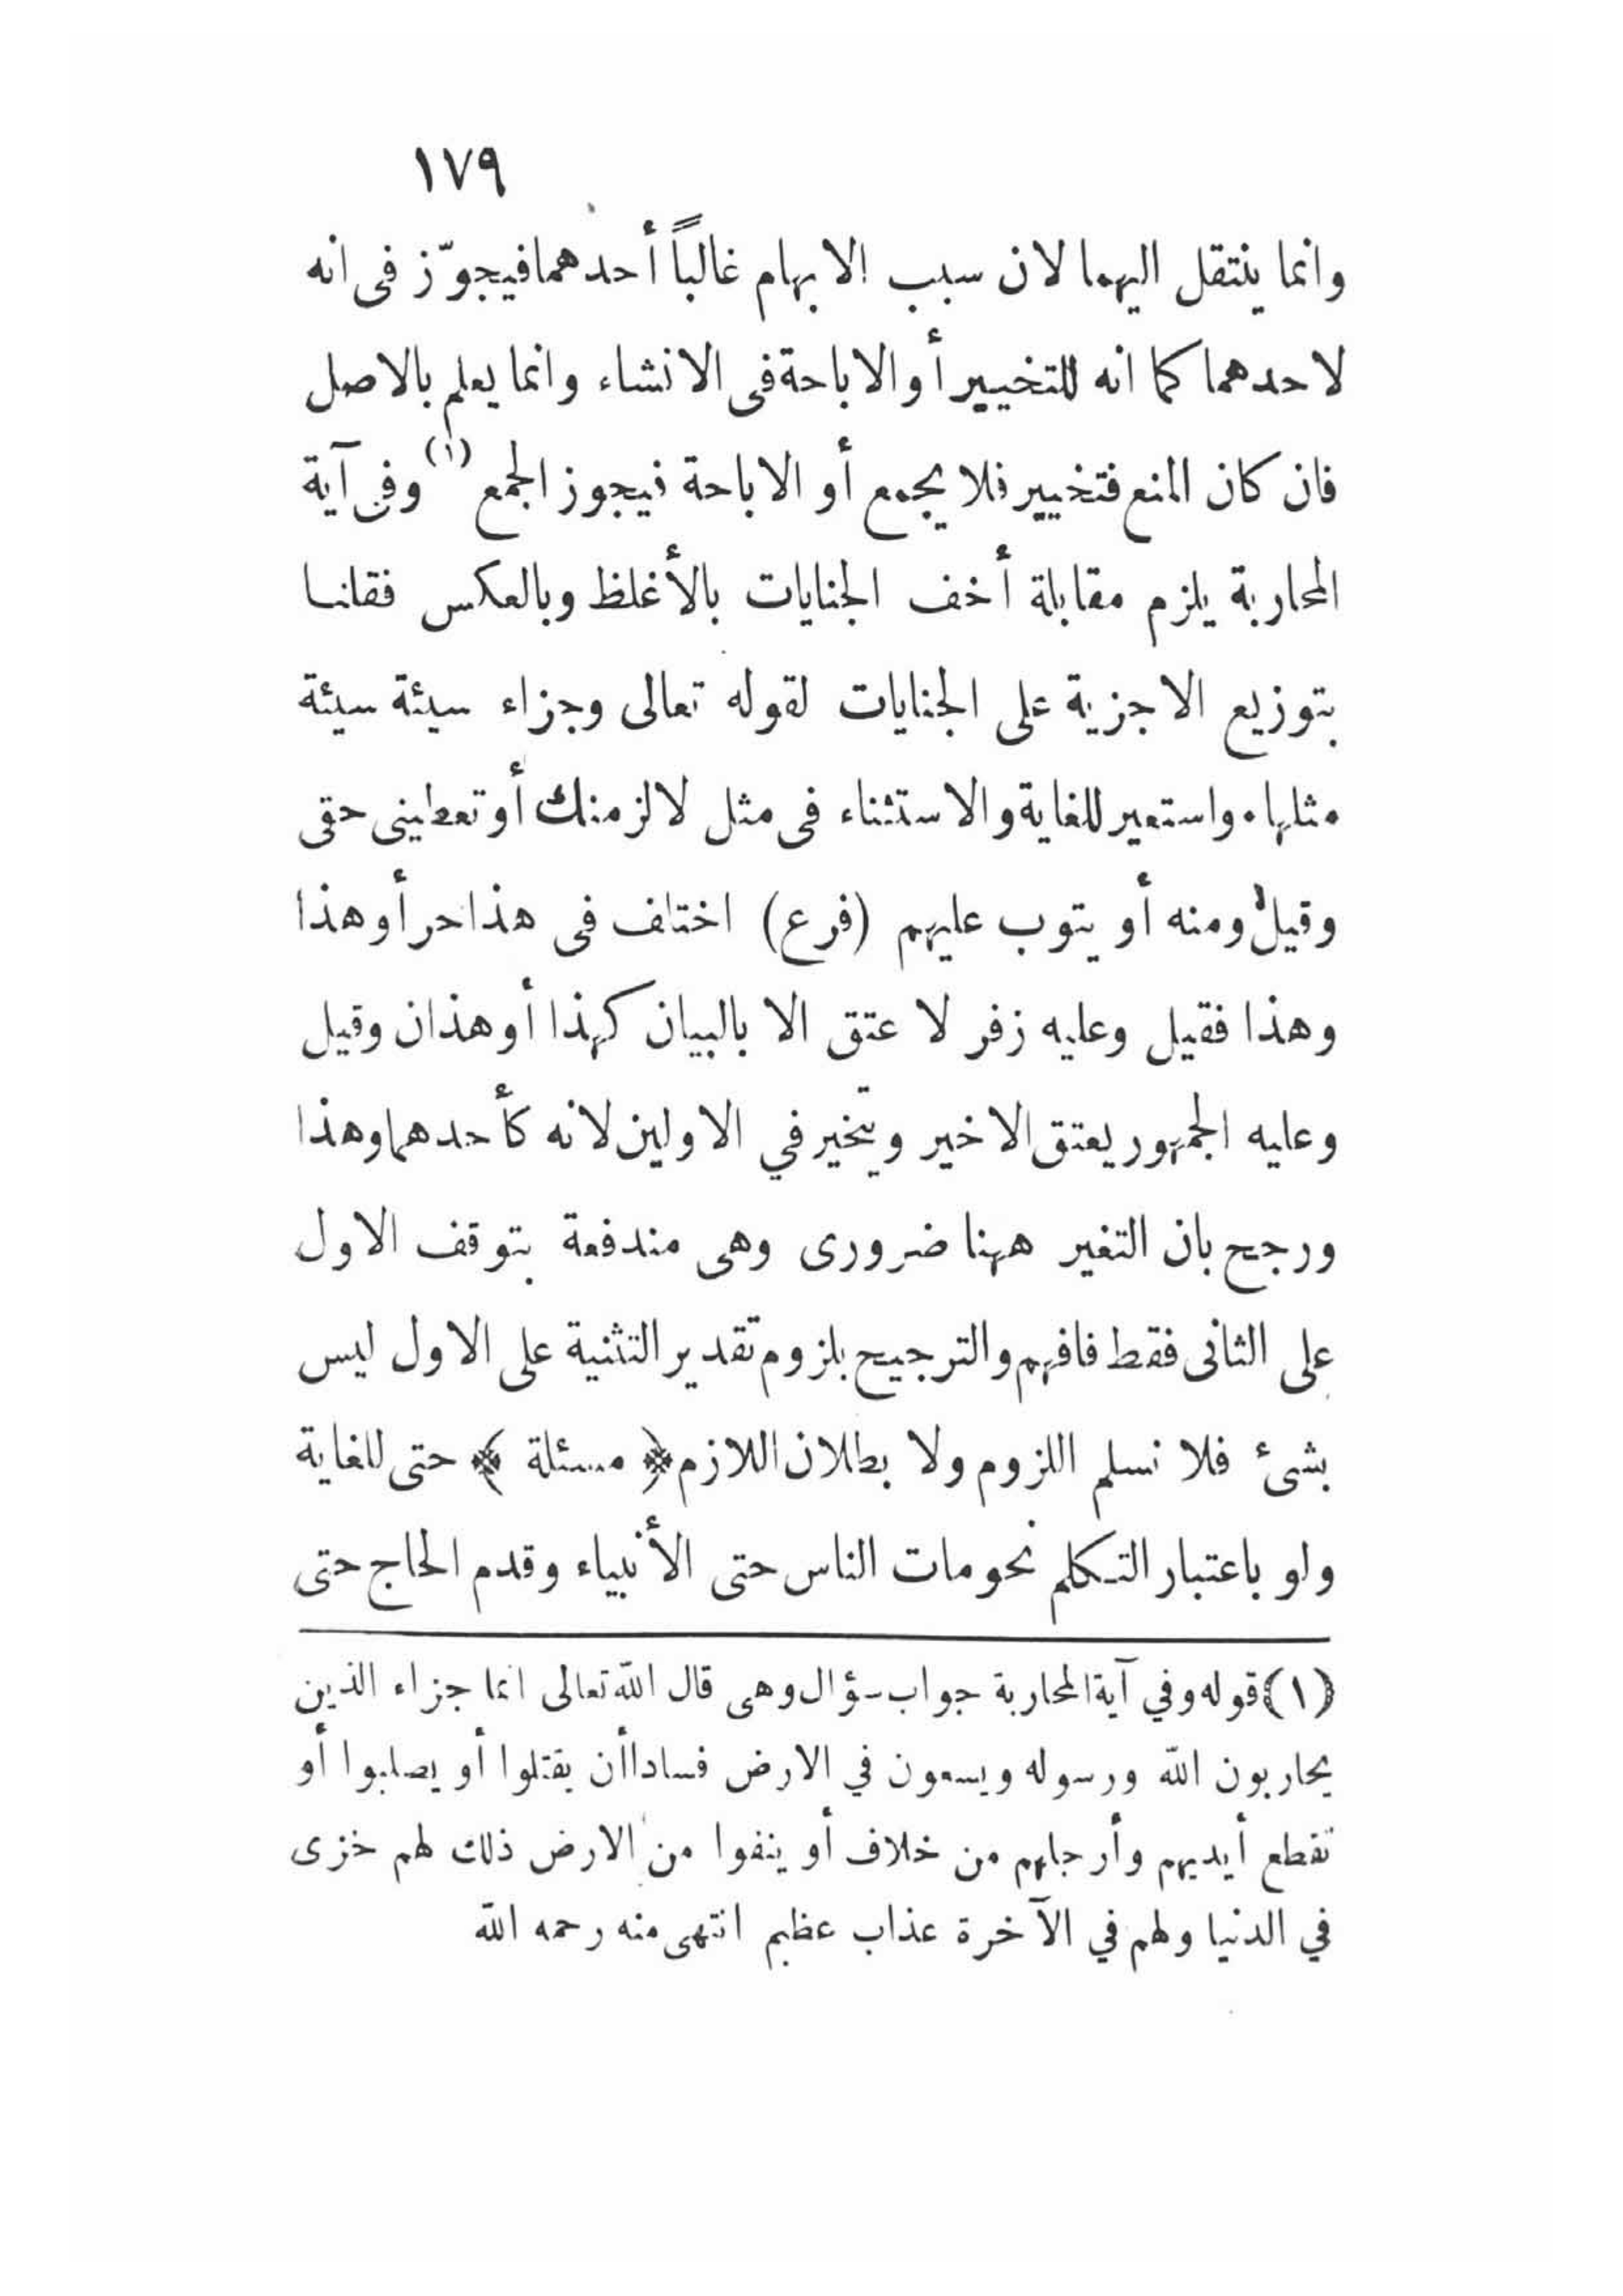 ١٧٩
وانما ينتقل اليهما لان سبب الابهام غالباً أحدهما فيجوّز فى انه
لاحدهما كما انه للتخيير أو الاباحة فى الانشاء وانما يعلم بالاصل
فان كان المنع فتخيير فلا يجمع أو الاباحة فيجوز الجمع (١) وفى آية
المحاربة يلزم مقابلة أخف الجنايات بالأغلظ وبالعكس فقلنا
بتوزيع الاجزية على الجنايات لقوله تعالى وجزاء سيئة سيئة
مثلها ٠ واستعير للغاية والاستثناء فى مثل لالزمنك أو تعطينى حقى
وقيل ومنه أو يتوب عليهم (فرع) اختلف فى هذا حر أو هذا
وهذا فقيل وعليه زفر لا عتق الا بالبيان كهذا أو هذان وقيل
وعليه الجمهور يعتق الاخير ويتخير في الاولين لانه كأحدهما وهذا
ورجح بان التغير ههنا ضرورى وهى مندفعة بتوقف الاول
على الثانى فقط فافهم والترجيح بلزوم تقدير التثنية على الاول ليس
بشئ فلا نسلم اللزوم ولا بطلان اللازم ﴿ مسئلة ﴾ حتى للغاية
ولو باعتبار التكلم نحو مات الناس حتى الأنبياء وقدم الحاج حتى
(١) قوله وفي آية المحاربة جواب سؤال وهى قال الله تعالى انما جزاء الذين
يحاربون الله ورسوله ويسعون في الارض فسادا أن يقتلوا أو يصلبوا أو
تقطع أيديهم وأرجلهم من خلاف أو ينفوا من الارض ذلك لهم خزى
في الدنيا ولهم في الآخرة عذاب عظيم انتهى منه رحمه الله